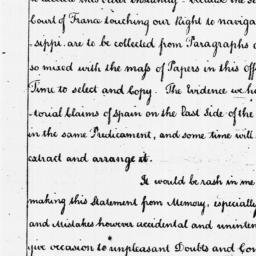 Court of France touching our Right to naviga
sippi. are to be collected from Paragraphs
so mixed with the mass of Papers in this Off
Time to select and Copy. The Evidence we h
torial Claims of Spain on the East Side of the
in the same Predicament, and some time will
extract and arrange it.
It would be rash in me
making this Statement from Memory, especially
and Mistakes however accidental and uninten
give occasion to unpleasant Doubts and Con